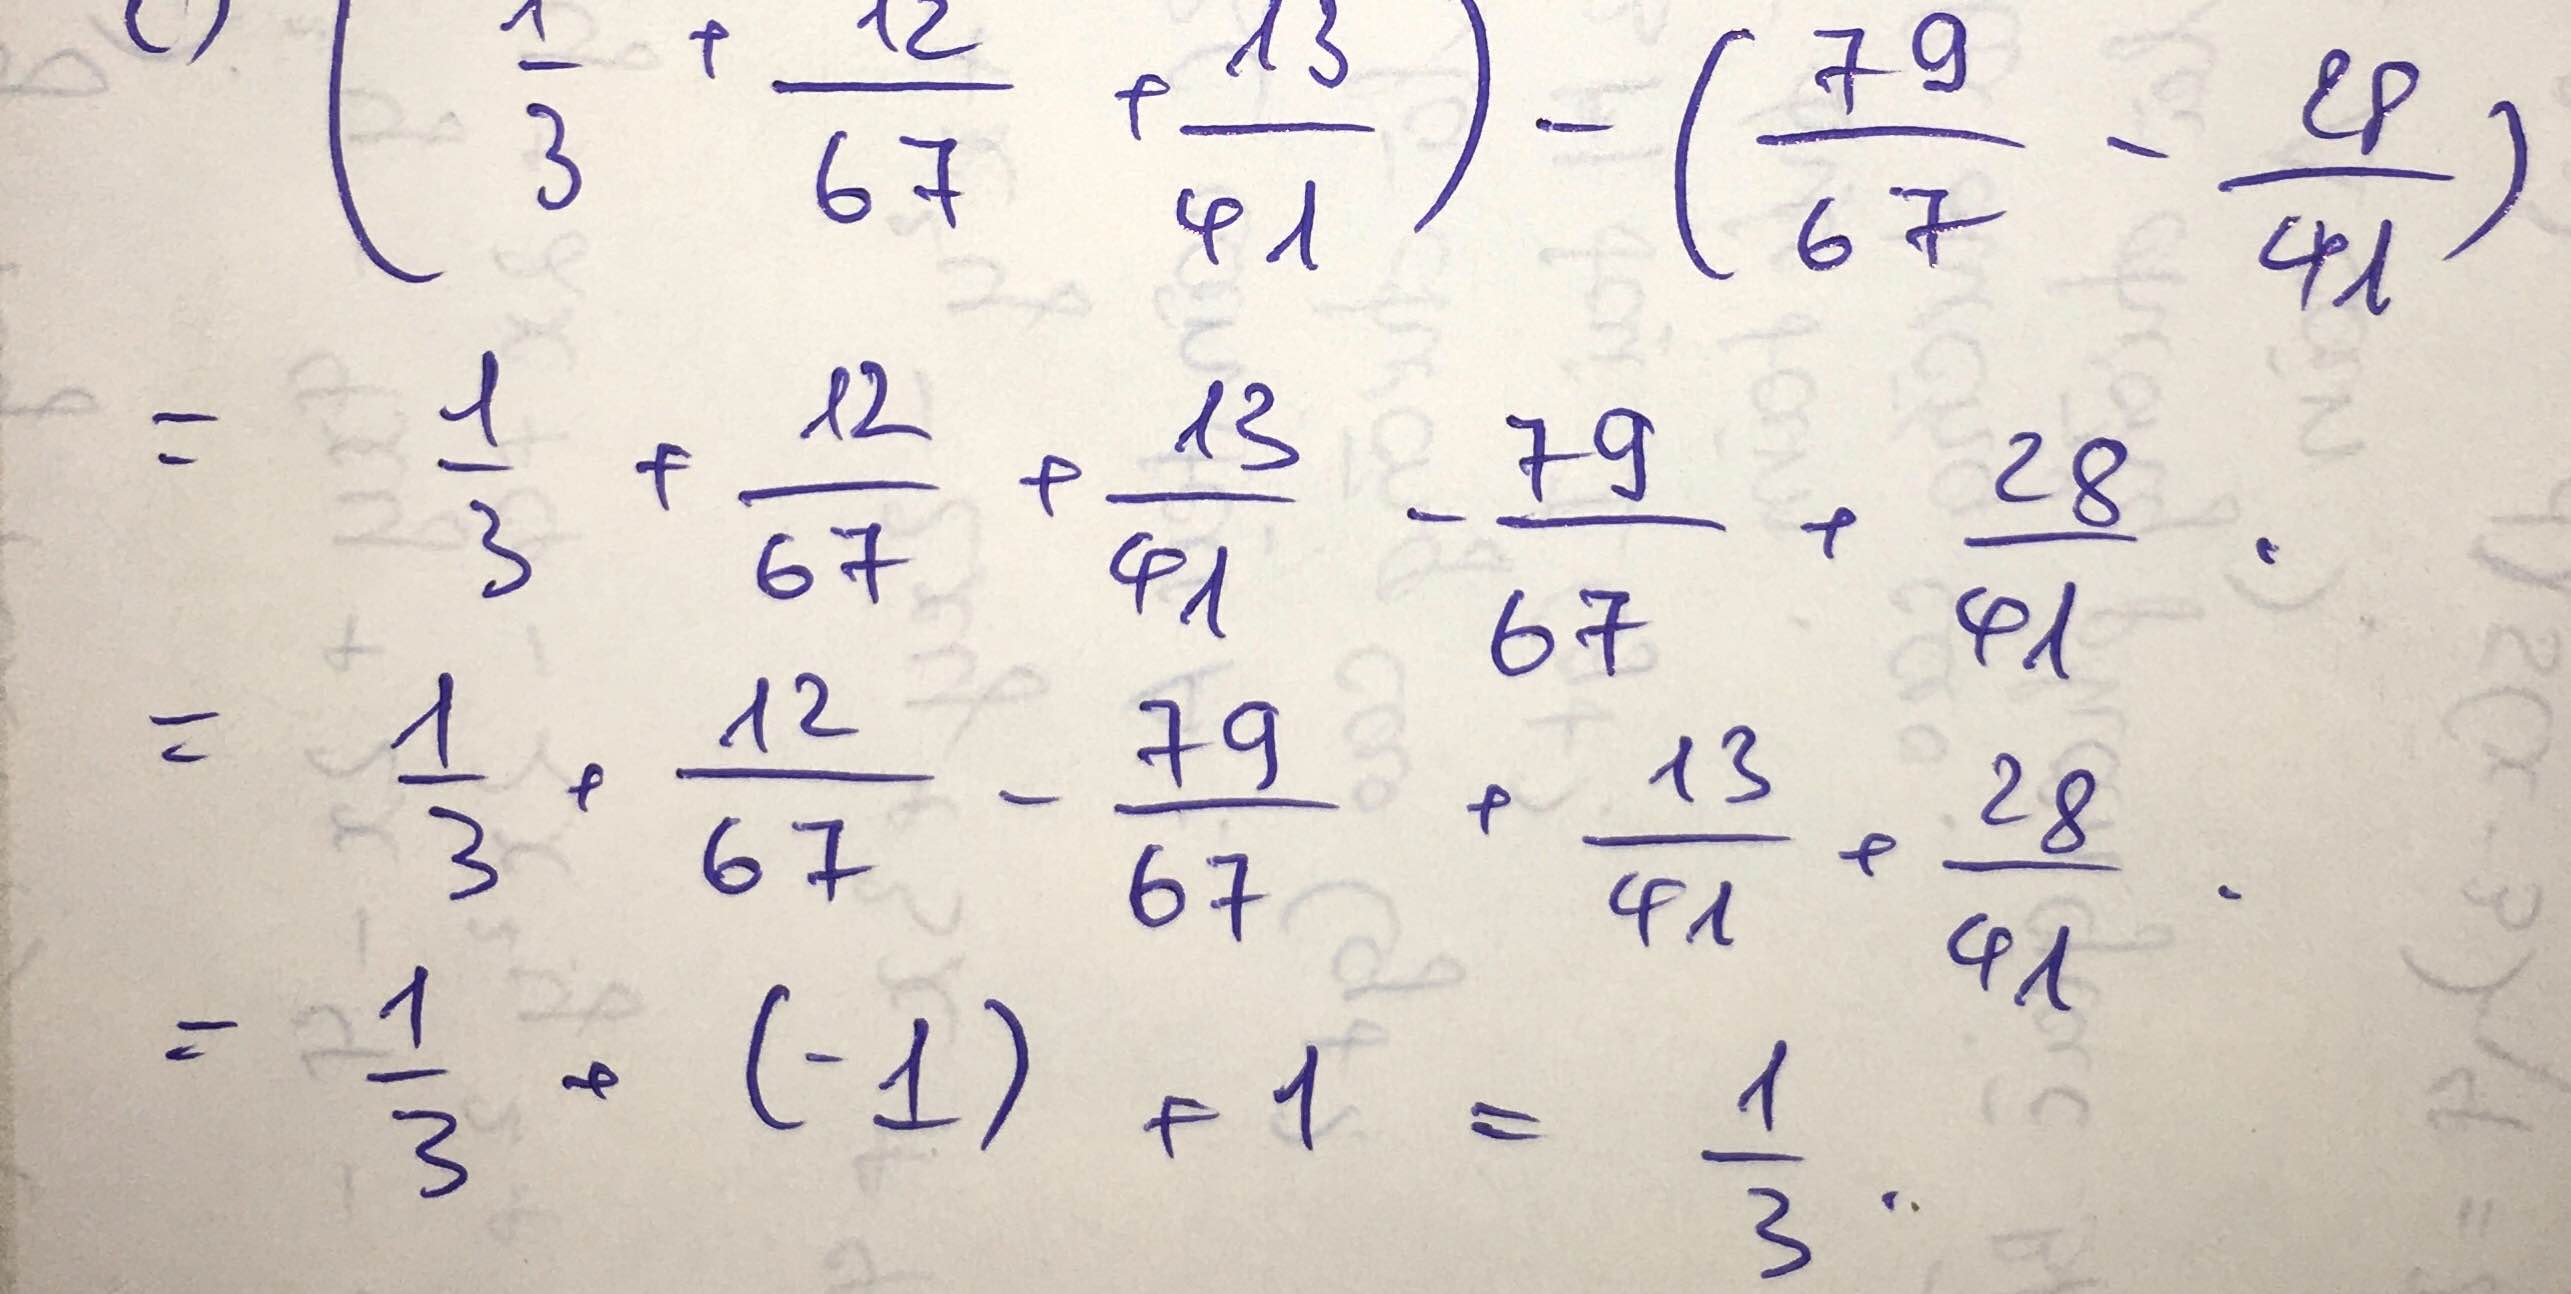 c) (1/3 + 12/67 + 13/41) - (79/67 - 28/41)
= 1/3 + 12/67 + 13/41 - 79/67 + 28/41 .
= 1/3 + 12/67 - 79/67 + 13/41 + 28/41 .
= 1/3 + (-1) + 1 = 1/3 .